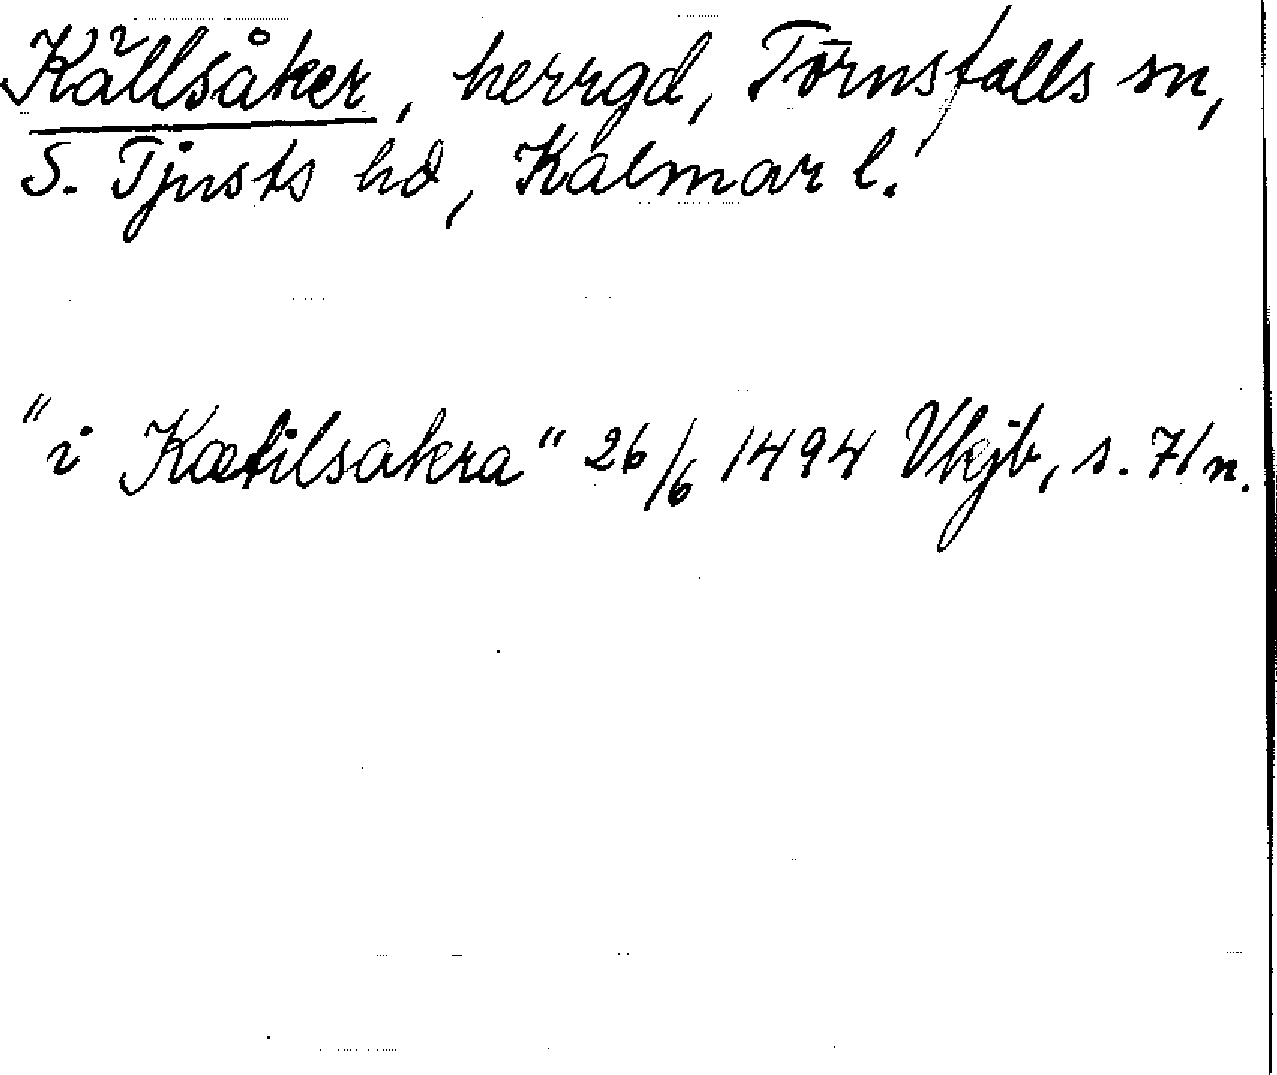 Källsåker, herrgd, Törnsfalls sn,
S. Tjusts hd, Kalmar l.
"i Kætilsakra" 26/6 1494 Vkjb, s. 71 n.